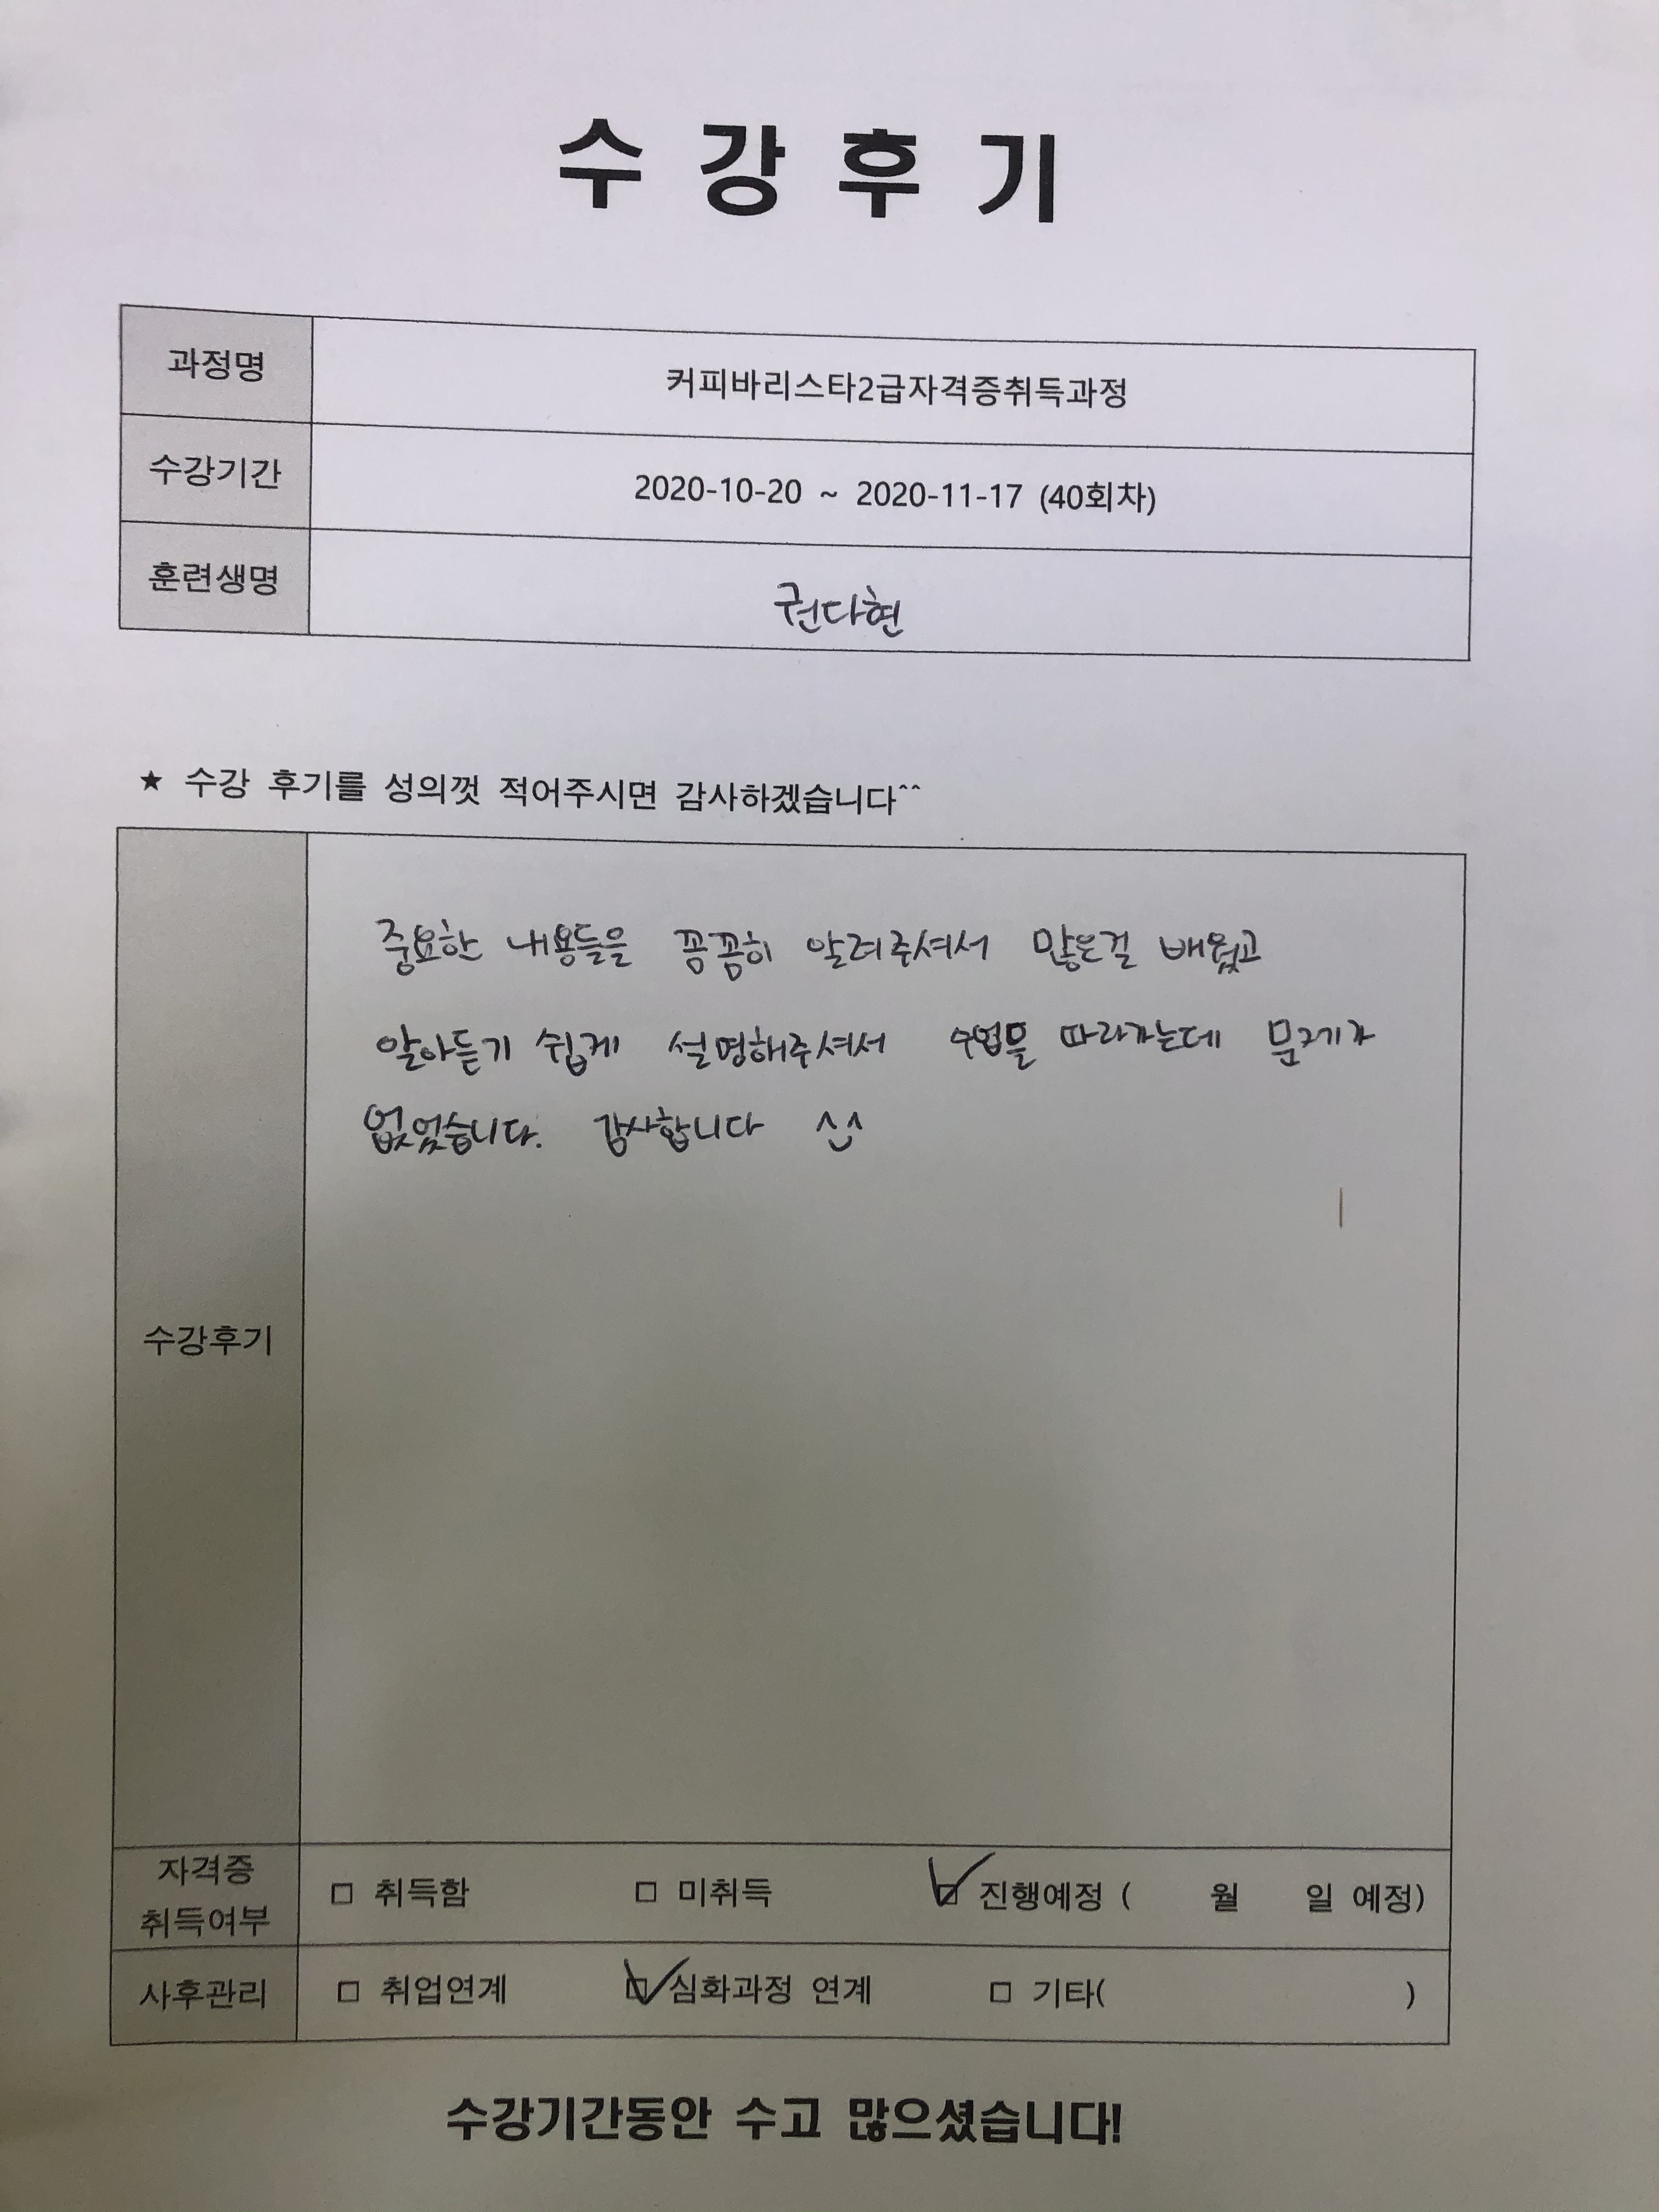 수강후기
과정명 커피바리스타2급자격증취득과정
수강기간 2020-10-20 ~ 2020-11-17 (40회차)
훈련생명 권다현
★ 수강 후기를 성의껏 적어주시면 감사하겠습니다^^
중요한 내용들을 꼼꼼히 알려주셔서 많은걸 배웠고
알아듣기 쉽게 설명해주셔서 수업을 따라가는데 문제가
없었습니다. 감사합니다 ^^
수강후기
자격증
취득여부
□ 취득함 □ 미취득 ☑ 진행예정 ( 월 일 예정)
사후관리 □ 취업연계 ☑ 심화과정 연계 □ 기타( )
수강기간동안 수고 많으셨습니다!